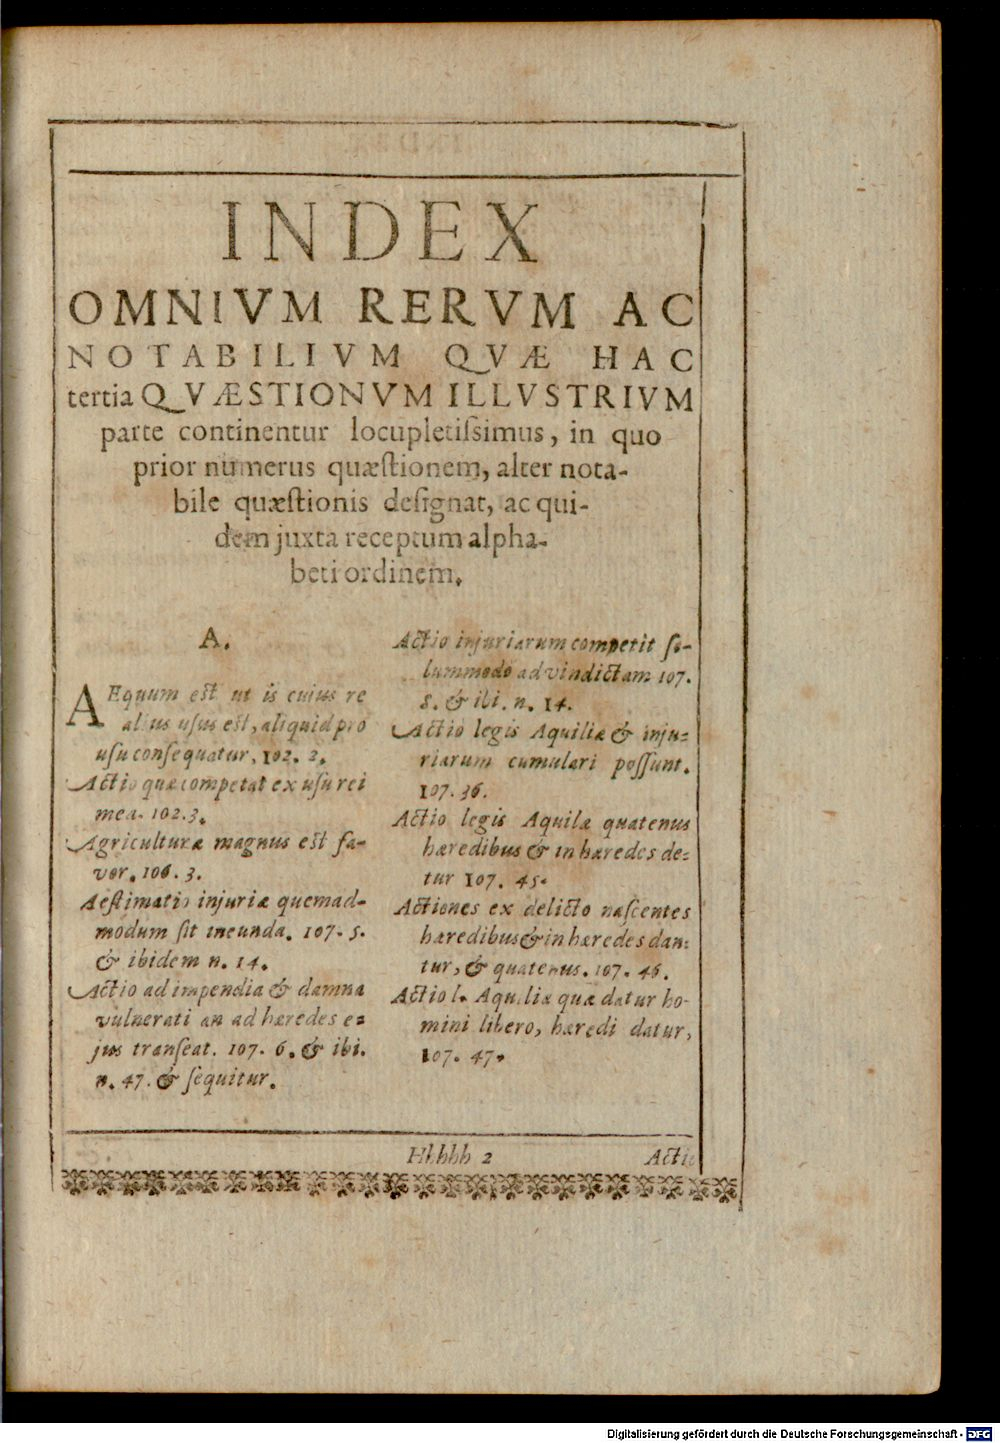 INDEX
OMNIVM RERVM AC
NOTABILIVM QVÆ HAC
tertia QVÆSTIONVM ILLVSTRIVM
parte continentur locupletiſsimus, in quo
prior numerus quæſtionem, alter nota-
bile quæſtionis deſignat, ac qui-
dem juxta receptum alpha-
beti ordinem.
A.
AEquum est ut is cuius re
alius uſus est, aliquid pro
uſu conſequatur, 102. 2.
Actio quæ competat ex uſu rei
mea. 102. 3.
Agriculturæ magnus est fa-
vor. 106. 3.
Aestimatio injuriæ quemad-
modum ſit ineunda. 107. 5.
& ibidem n. 14.
Actio ad impendia & damna
vulnerati an ad hæredes e-
jus tranſeat. 107. 6. & ibi.
n. 47. & ſequitur.
Actio injuriarum competit ſo-
lummodo ad vindictam 107.
5. & ibi. n. 14.
Actio legis Aquiliæ & inju-
riarum cumulari poſſunt.
107. 36.
Actio legis Aquilæ quatenus
hæredibus & in hæredes de-
tur 107. 45.
Actiones ex delicto naſcentes
hæredibus & in hæredes dan-
tur, & quatenus. 107. 46.
Actio l. Aquiliæ quæ datur ho-
mini libero, hæredi datur,
107. 47.
Hhhhh 2
Actio
Digitalisierung gefördert durch die Deutsche Forschungsgemeinschaft - DFG